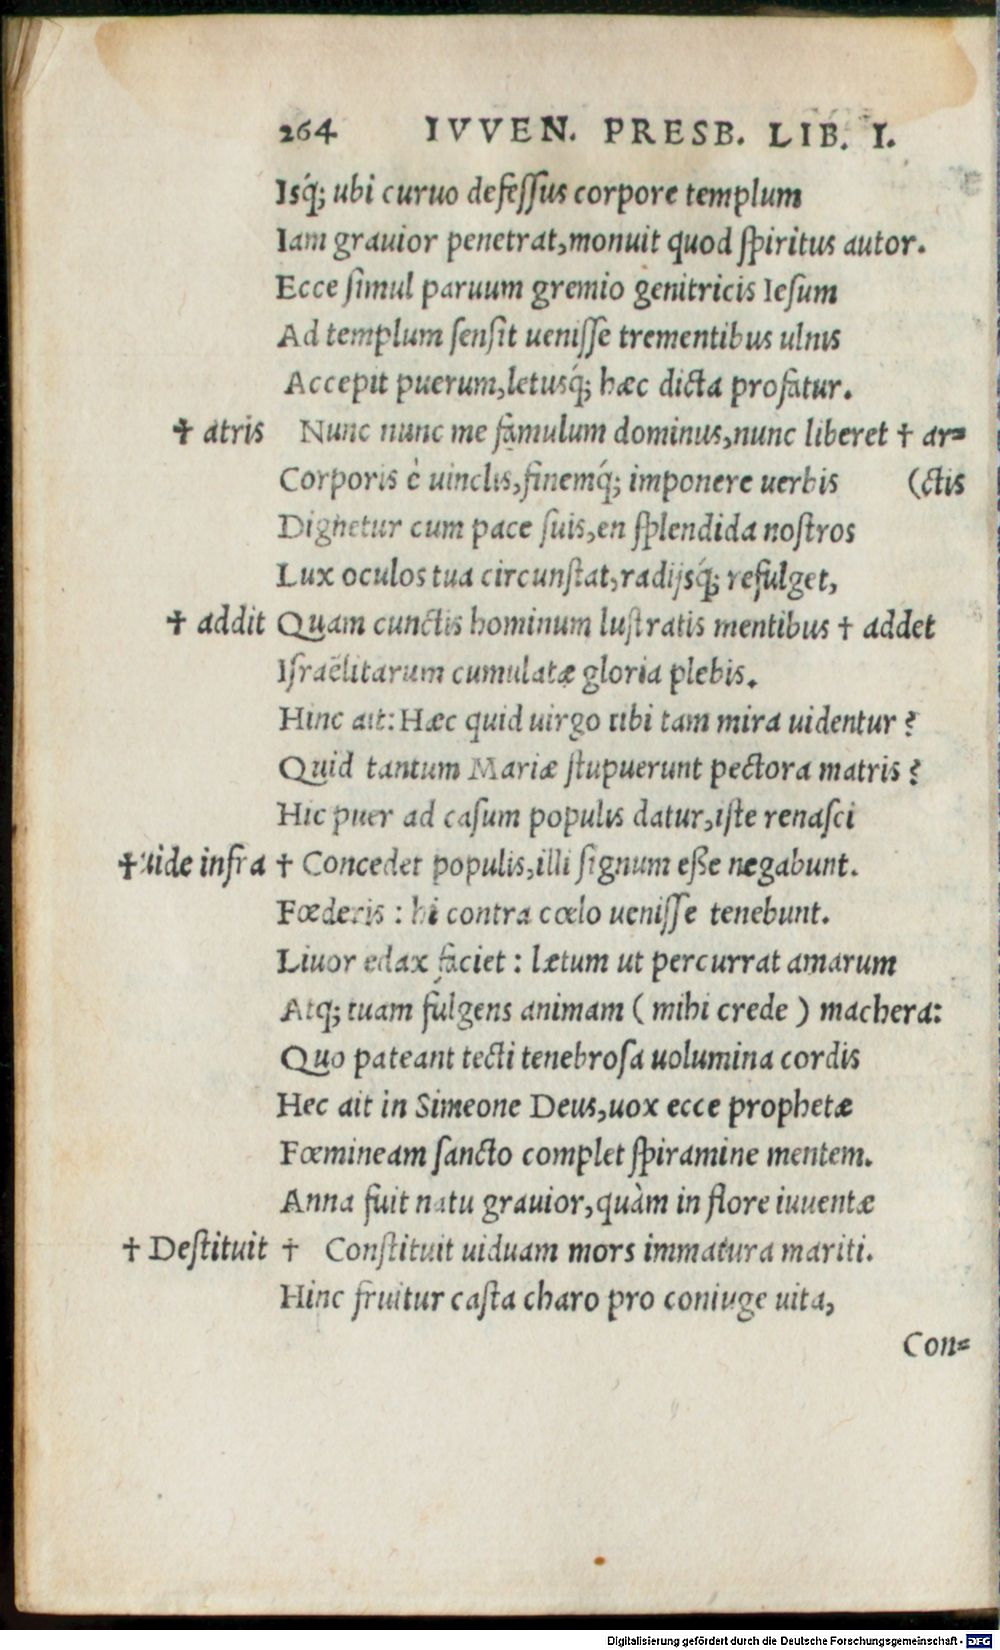 264 IVVEN. PRESB. LIB. I.
Isq́; ubi curuo defeſſus corpore templum
Iam grauior penetrat, monuit quod ſpiritus autor.
Ecce ſimul paruum gremio genitricis Ieſum
Ad templum ſenſit ueniſſe trementibus ulnis
Accepit puerum, letusq́; hæc dicta profatur.
✝ atris Nunc nunc me famulum dominus, nunc liberet ✝ ar=
Corporis è uinclis, finemq́; imponere uerbis (ctis
Dignetur cum pace ſuis, en ſplendida noſtros
Lux oculos tua circunſtat, radijsq́; refulget,
✝ addit Quam cunctis hominum luſtratis mentibus ✝ addet
Iſraëlitarum cumulatæ gloria plebis.
Hinc ait: Hæc quid uirgo tibi tam mira uidentur?
Quid tantum Mariæ ſtupuerunt pectora matris?
Hic puer ad caſum populis datur, iſte renaſci
✝ uide infra ✝ Concedet populis, illi ſignum eſse negabunt.
Fœderis : hi contra cœlo ueniſſe tenebunt.
Liuor edax faciet : lætum ut percurrat amarum
Atq; tuam fulgens animam ( mihi crede ) machera:
Quo pateant tecti tenebroſa uolumina cordis
Hec ait in Simeone Deus, uox ecce prophetæ
Fœmineam ſancto complet ſpiramine mentem.
Anna fuit natu grauior, quàm in flore iuuentæ
✝ Deſtituit ✝ Conſtituit uiduam mors immatura mariti.
Hinc fruitur caſta charo pro coniuge uita,
Con=
Digitalisierung gefördert durch die Deutsche Forschungsgemeinschaft - DFG